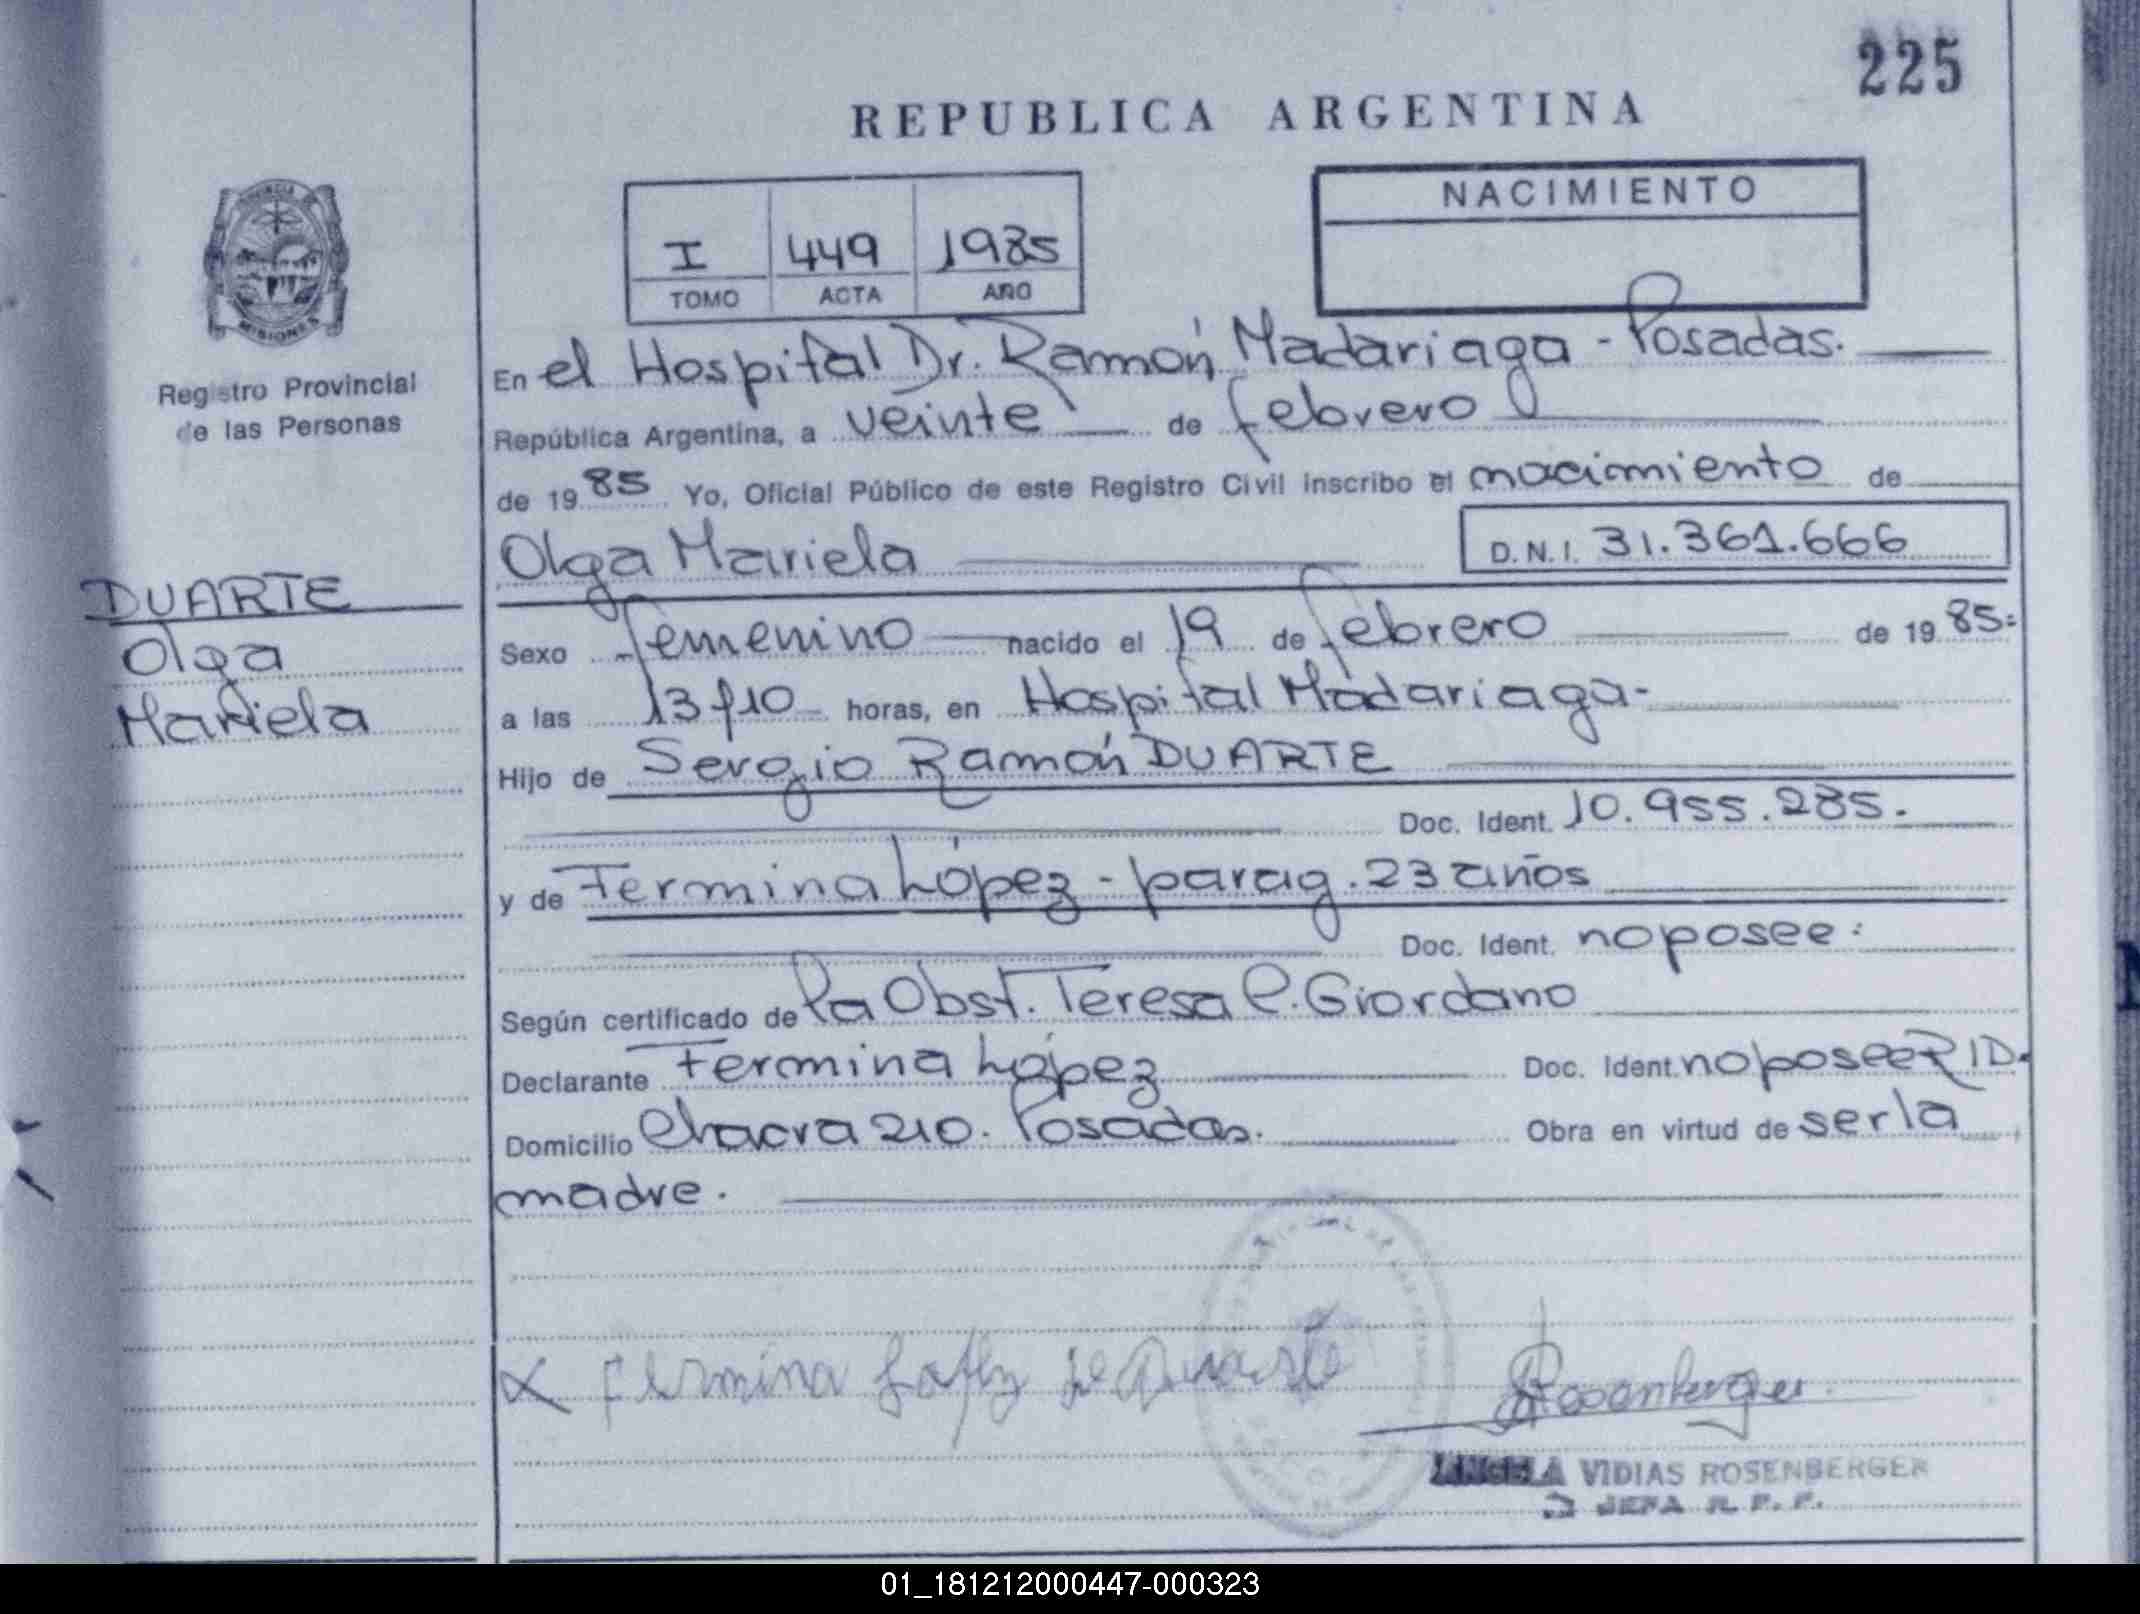 225
REPUBLICA ARGENTINA
NACIMIENTO
I 449 1985
TOMO ACTA AÑO
MISIONES
Registro Provincial
de las Personas
En el Hospital Dr. Ramón Madariaga - Posadas.
República Argentina, a veinte de febrero
de 1985 Yo, Oficial Público de este Registro Civil inscribo el nacimiento de
Olga Mariela D.N.I. 31.361.666
DUARTE
Olga
Mariela
Sexo femenino nacido el 19 de febrero de 1985
a las 13 y 10 horas, en Hospital Madariaga-
Hijo de Sergio Ramón DUARTE
Doc. Ident. 10.955.285.
y de Fermina López - parag. 23 años
Doc. Ident. no posee
Según certificado de la Obst. Teresa C. Giordano
Declarante Fermina López Doc. Ident. no posee
Domicilio Chacra 210. Posadas. Obra en virtud de ser la
madre.
Fermina López de Duarte
Rosenberger
VIDIAS ROSENBERGER
JEFA R. P. P.
01_181212000447-000323